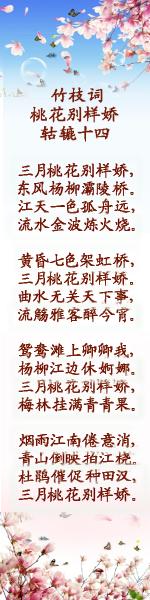 竹枝词
桃花别样娇
轱辘十四
三月桃花别样娇，
东风杨柳灞陵桥。
江天一色孤舟远，
流水金波炼火烧。
黄昏七色架虹桥，
三月桃花别样娇。
曲水无关天下事，
流觞雅客醉今宵。
鸳鸯滩上卿卿我，
杨柳江边休婀娜。
三月桃花别样娇，
梅林挂满青青果。
烟雨江南倦意消，
青山倒映拍江桡。
杜鹃催促种田汉，
三月桃花别样娇。